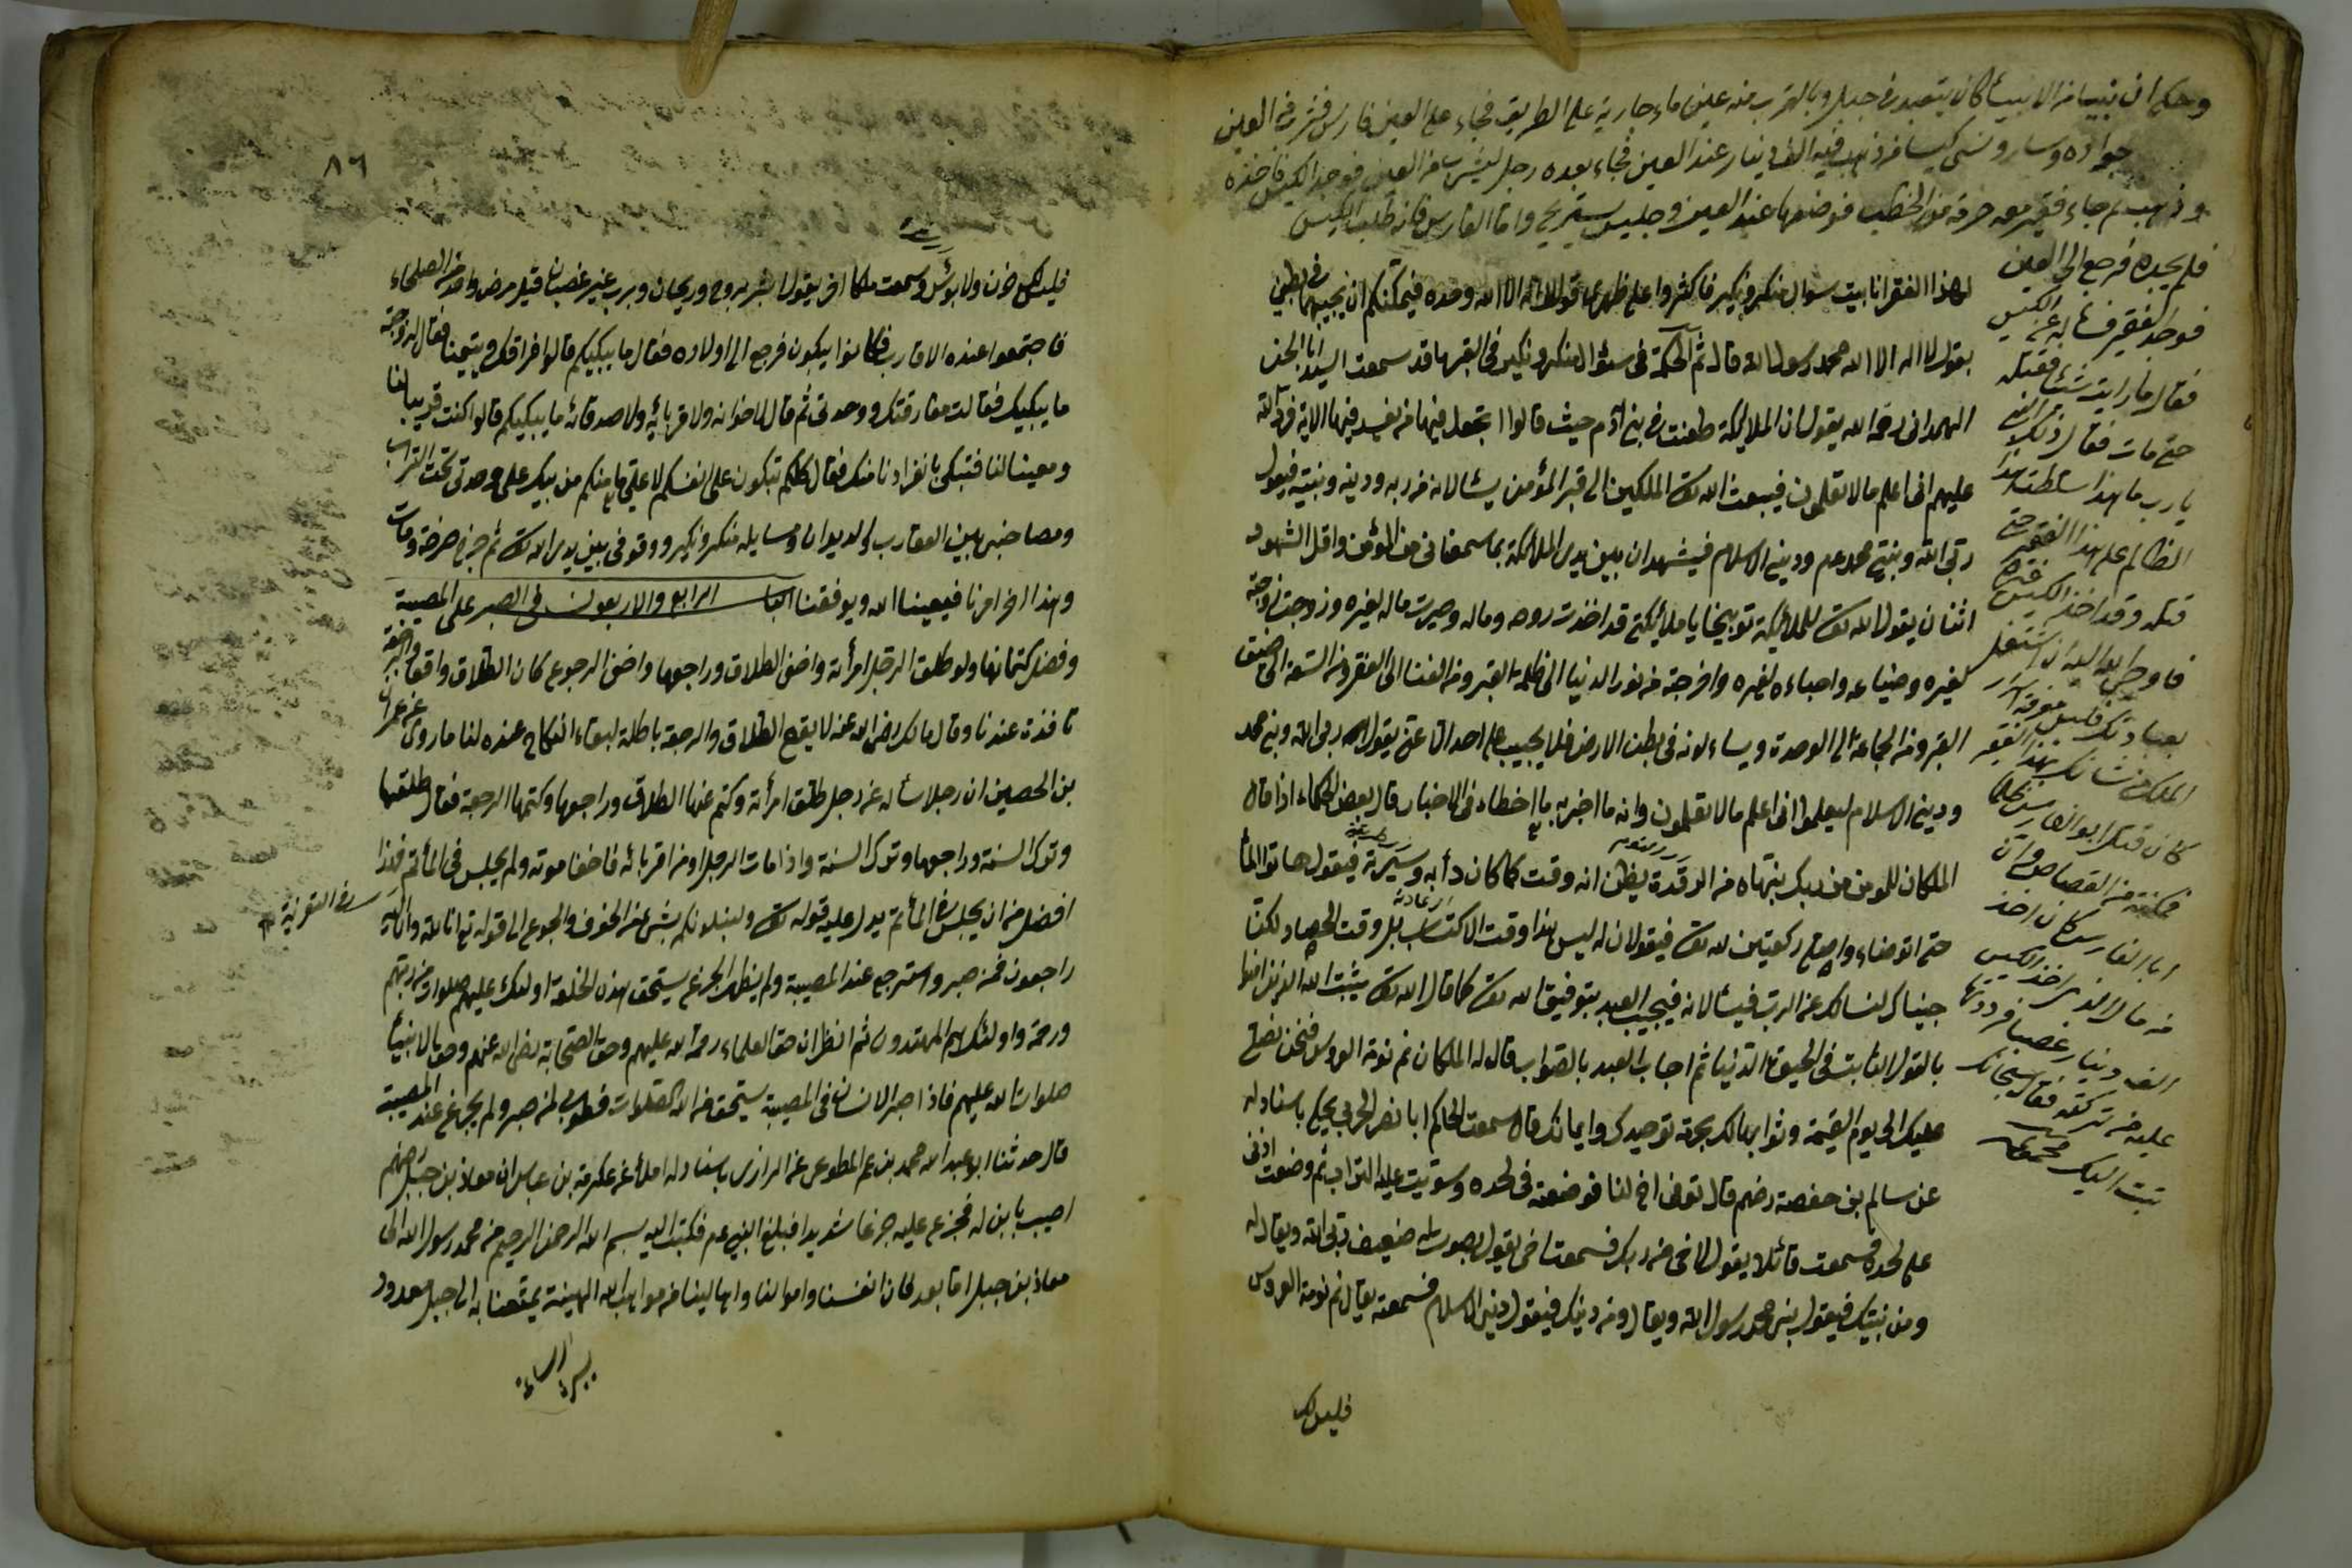 وحكى ان نبيا من الانبياء كان يتعبد في جبل وبالقرب منه عين ماء جارية على الطريق فجاء على العين فارس فشرب من العين
جواده وسار ونسى كيسا من ذهب فيه الف دينار عند العين فجاء بعده رجل ليشرب من العين فوجد الكيس فاخذه
وذهب ثم جاء فقير معه حزمة من الحطب فوضعها عند العين وجلس يستريح واما الفارس فانه طلب الكيس
فلم يجده فرجع الى العين
فوجد الفقير فساله عن الكيس
فقال ما رايت شيئا فقتله
حتى مات فقال ذلك النبى
يا رب ما هذا سلطت هذا
الظالم على هذا الفقير حتى
قتله وقد اخذ الكيس غيره
فاوحى الله اليه ان اشتغل
بعبادتك فليس معرفة اسرار
الملك من شانك هذا الفقير
كان قتل ابو الفارس ظلما
فمكنته من القصاص وان
ابا الفارس كان اخذ
من مال الذى اخذ الكيس
الف دينار غصبا فرددتها
عليه من تركته فقال سبحانك
تبت اليك
لهذا الفقر انا بيت سوال منكر ونكير فاكثروا على ظهرى قول لا اله الا الله وحده فيمكنكم ان يجيبهما فى بطنى
بقول لا اله الا الله محمد رسول الله قال ثم الحكمة فى سؤال منكر ونكير فى القبر ما قد سمعت السيد ابا الحسن
الهمدانى رحمه الله يقول ان الملائكة طعنت فى بنى آدم حيث قالوا اتجعل فيها من يفسد فيها الاية فرد الله
عليهم انى اعلم ما لا تعلمون فيبعث الله تعالى الملكين الى قبر المؤمن يسئالانه من ربه ودينه ونبيه فيقول
ربى الله ونبيى محمد عم ودينى الاسلام فيشهدان بين يدى الملائكة بما سمعا من المؤمن واقل الشهود
اثنان يقول الله تعالى للملائكة توبيخا يا ملائكتى قد اخذت روحه وماله وصيرت ماله لغيره وزوجت زوجته
لغيره وضياعه واحباءه لغيره واخرجته من نور الدنيا الى ظلمة القبر ومن الغنا الى الفقر ومن السعة الى ضيق
القبر ومن الجماعة الى الوحدة ويساءلونه فى بطن الارض فلا يجيب على احد الا عنى يقول الله ربى الله ونبيى محمد
ودينى الاسلام ليعلموا انى اعلم ما لا تعلمون وانه ما اخبر به ما اخطاء فى الاخبار قال بعض الحكماء اذا قال
الملكان للمومن من ربك ينتهاه من الرقدة يظن انه وقت كما كان دأبه وسيرته فيقول هاتوا الماء
حتى اتوضاء واصلى ركعتين لله تعالى فيقولان له ليس هذا وقت الاكتساب بل وقت الحصاد لكنا
جيناك لنسالك عن الرب فيسئالانه فيجيب العبد بتوفيق الله تعالى كما قال الله تعالى يثبت الله الذين امنوا
بالقول الثابت فى الحيوة الدنيا ثم اجاب العبد بالصواب قال له الملكان نم نومة العروس فنحن نضع
عليك الى يوم القيمة وثوابها لك بحرمة توحيدك وايمانك قال سمعت الحاكم ابا نصر الحربى يحكى باسناد له
عن سالم بن حفصة رضهم قال توفى اخ لنا فوضعته فى لحده وسويت عليه التراب ثم وضعت اذنى
على لحده فسمعت قائلا يقول لاخى من ربك فسمعت اخى يقول بصوت له ضعيف ربى الله ويقال له
ومن نبيك فيقول نبيى محمد رسول الله ويقال ومن دينك فيقول دينى الاسلام فسمعته يقال نم نومة العروس
فليس لك
٨٦
فليس لك حزن ولا بؤس وسمعت ملكا اخر يقول ابشر بروح وريحان وبرب غير غضبان قيل مرض واحد من الصلحاء
فاجتمعوا عنده الاقارب فكانوا يبكون فرجع الى اولاده فقال ما يبكيكم قالوا فراقك ويتيمنا فقال لزوجته
ما يبكيك فقالت مفارقتك ووحدتى ثم قال لاخوانه ولاقربائه ولاصدقائه ما يبكيكم قالوا كنت قريبا لنا
ومعينا لنا فتبكى بانفرادنا منك فقال كلكم تبكون على انفسكم لا على ما منكم من يبكى على وحدتى تحت التراب
ومصاحبتى بين العقارب والديدان ومسايله منكر ونكير ووقوفى بين يدى الله تعالى ثم خر صرخة ومات
وهذا اخر امرنا فيعيننا الله ويوفقنا الباب الرابع والاربعون فى الصبر على المصيبة
وفضل كتمانها ولو طلق الرجل امرأته واخفى الطلاق وراجعها واخفى الرجوع كان الطلاق واقعا والرجعة
نافذة عندنا وقال مالك رضى الله عنه لا يقع الطلاق والرجعة باطلة لبقاء النكاح عنده لنا ما روى عن عمران
بن الحصين ان رجلا سأله عن رجل طلق امرأته وكتم عنها الطلاق وراجعها وكتمها الرجعة فقال طلقها
وترك السنة وراجعها وترك السنة واذا مات الرجل او من اقربائه فاخفا موته ولم يجلس فى المأتم فهذا
افضل من ان يجلس فى المأتم يدل عليه قوله تعالى ولنبلونكم بشىء من الخوف والجوع الى قوله تع انا لله وانا اليه
فى التعزية
راجعون فمن صبر واسترجع عند المصيبة ولم يظهر الجزع يستحق هذه الخلعة اولئك عليهم صلوات من ربهم
ورحمة واولئك هم المهتدون ثم انظر ان حق العلماء رحمة الله عليهم وحق الصحابة رضى الله عنهم وحق الانبياء
صلوات الله عليهم فاذا صبر الانسان فى المصيبة يستحق من الله الصلوات فطوبى لمن صبر ولم يجزع عند المصيبة
قال حدثنا ابو عبد الله محمد بن عم المطوعى عن الرازى باسناد له املأ عن عكرمة بن عباس ان معاذ بن جبل رضهم
اصيب بابن له فجزع عليه جزعا شديدا فبلغ النبى عم فكتب اليه بسم الله الرحمن الرحيم من محمد رسول الله الى
معاذ بن جبل اما بعد فان انفسنا واموالنا واهالينا من مواهب الله الهنيئة يمتعنا به الى اجل معدود